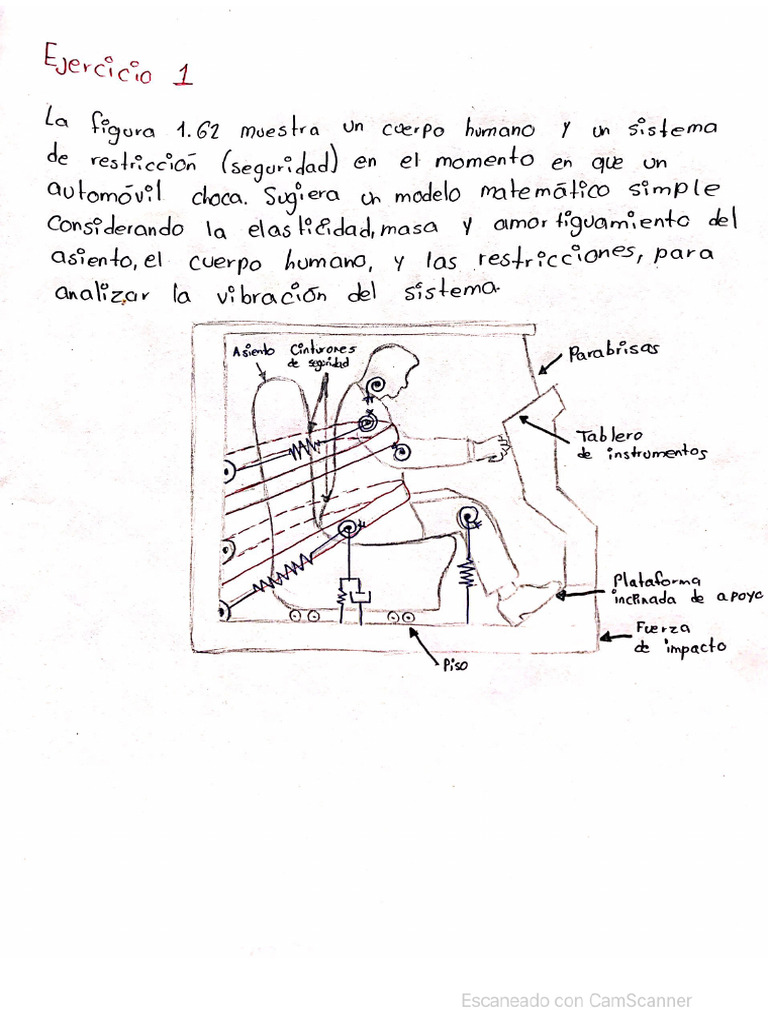 Ejercicio 1
La figura 1.62 muestra un cuerpo humano y un sistema
de restricción (seguridad) en el momento en que un
automóvil choca. Sugiera un modelo matemático simple
Considerando la elasticidad, masa y amortiguamiento del
asiento, el cuerpo humano, y las restricciones, para
analizar la vibración del sistema.
Asiento
Cinturones
de seguridad
Parabrisas
Tablero
de instrumentos
Plataforma
inclinada de apoyo
Fuerza
de impacto
Piso
Escaneado con CamScanner